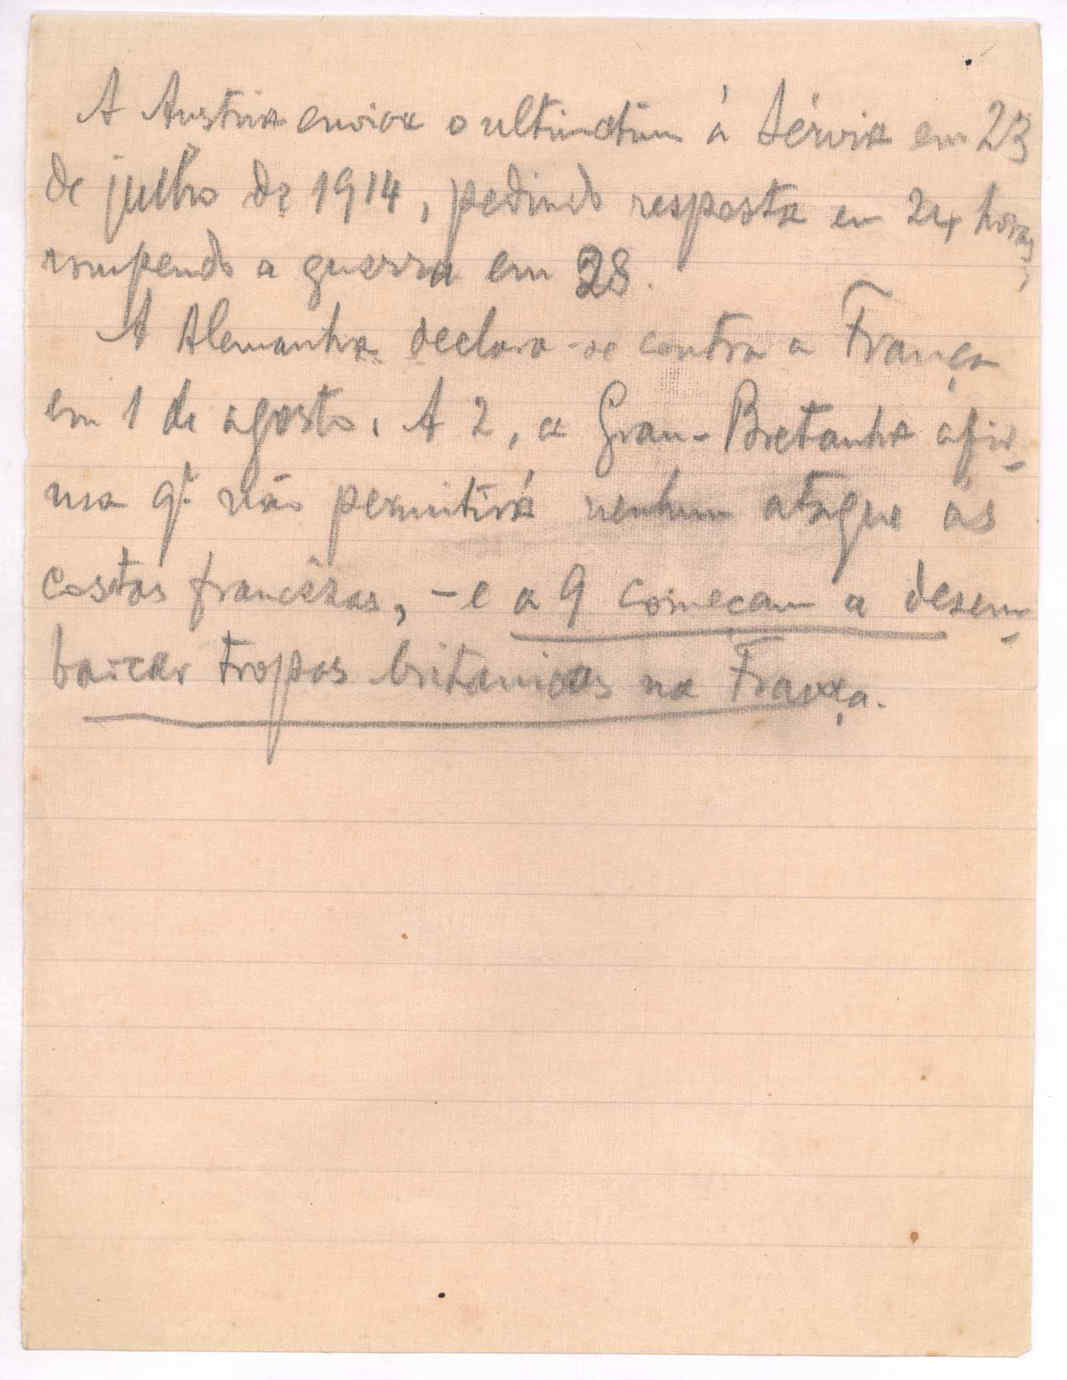 A Austria enviou o ultimatum á Sérvia em 23
de julho de 1914, pedindo resposta em 24 horas,
rompendo a guerra em 28.
A Alemanha declara-se contra a França
em 1 de agosto. A 2, a Gran-Bretanha afir-
ma q.e não permitirá nenhum ataque ás
costas francêsas, - e a 9 começam a desem-
barcar tropas britanicas na França.